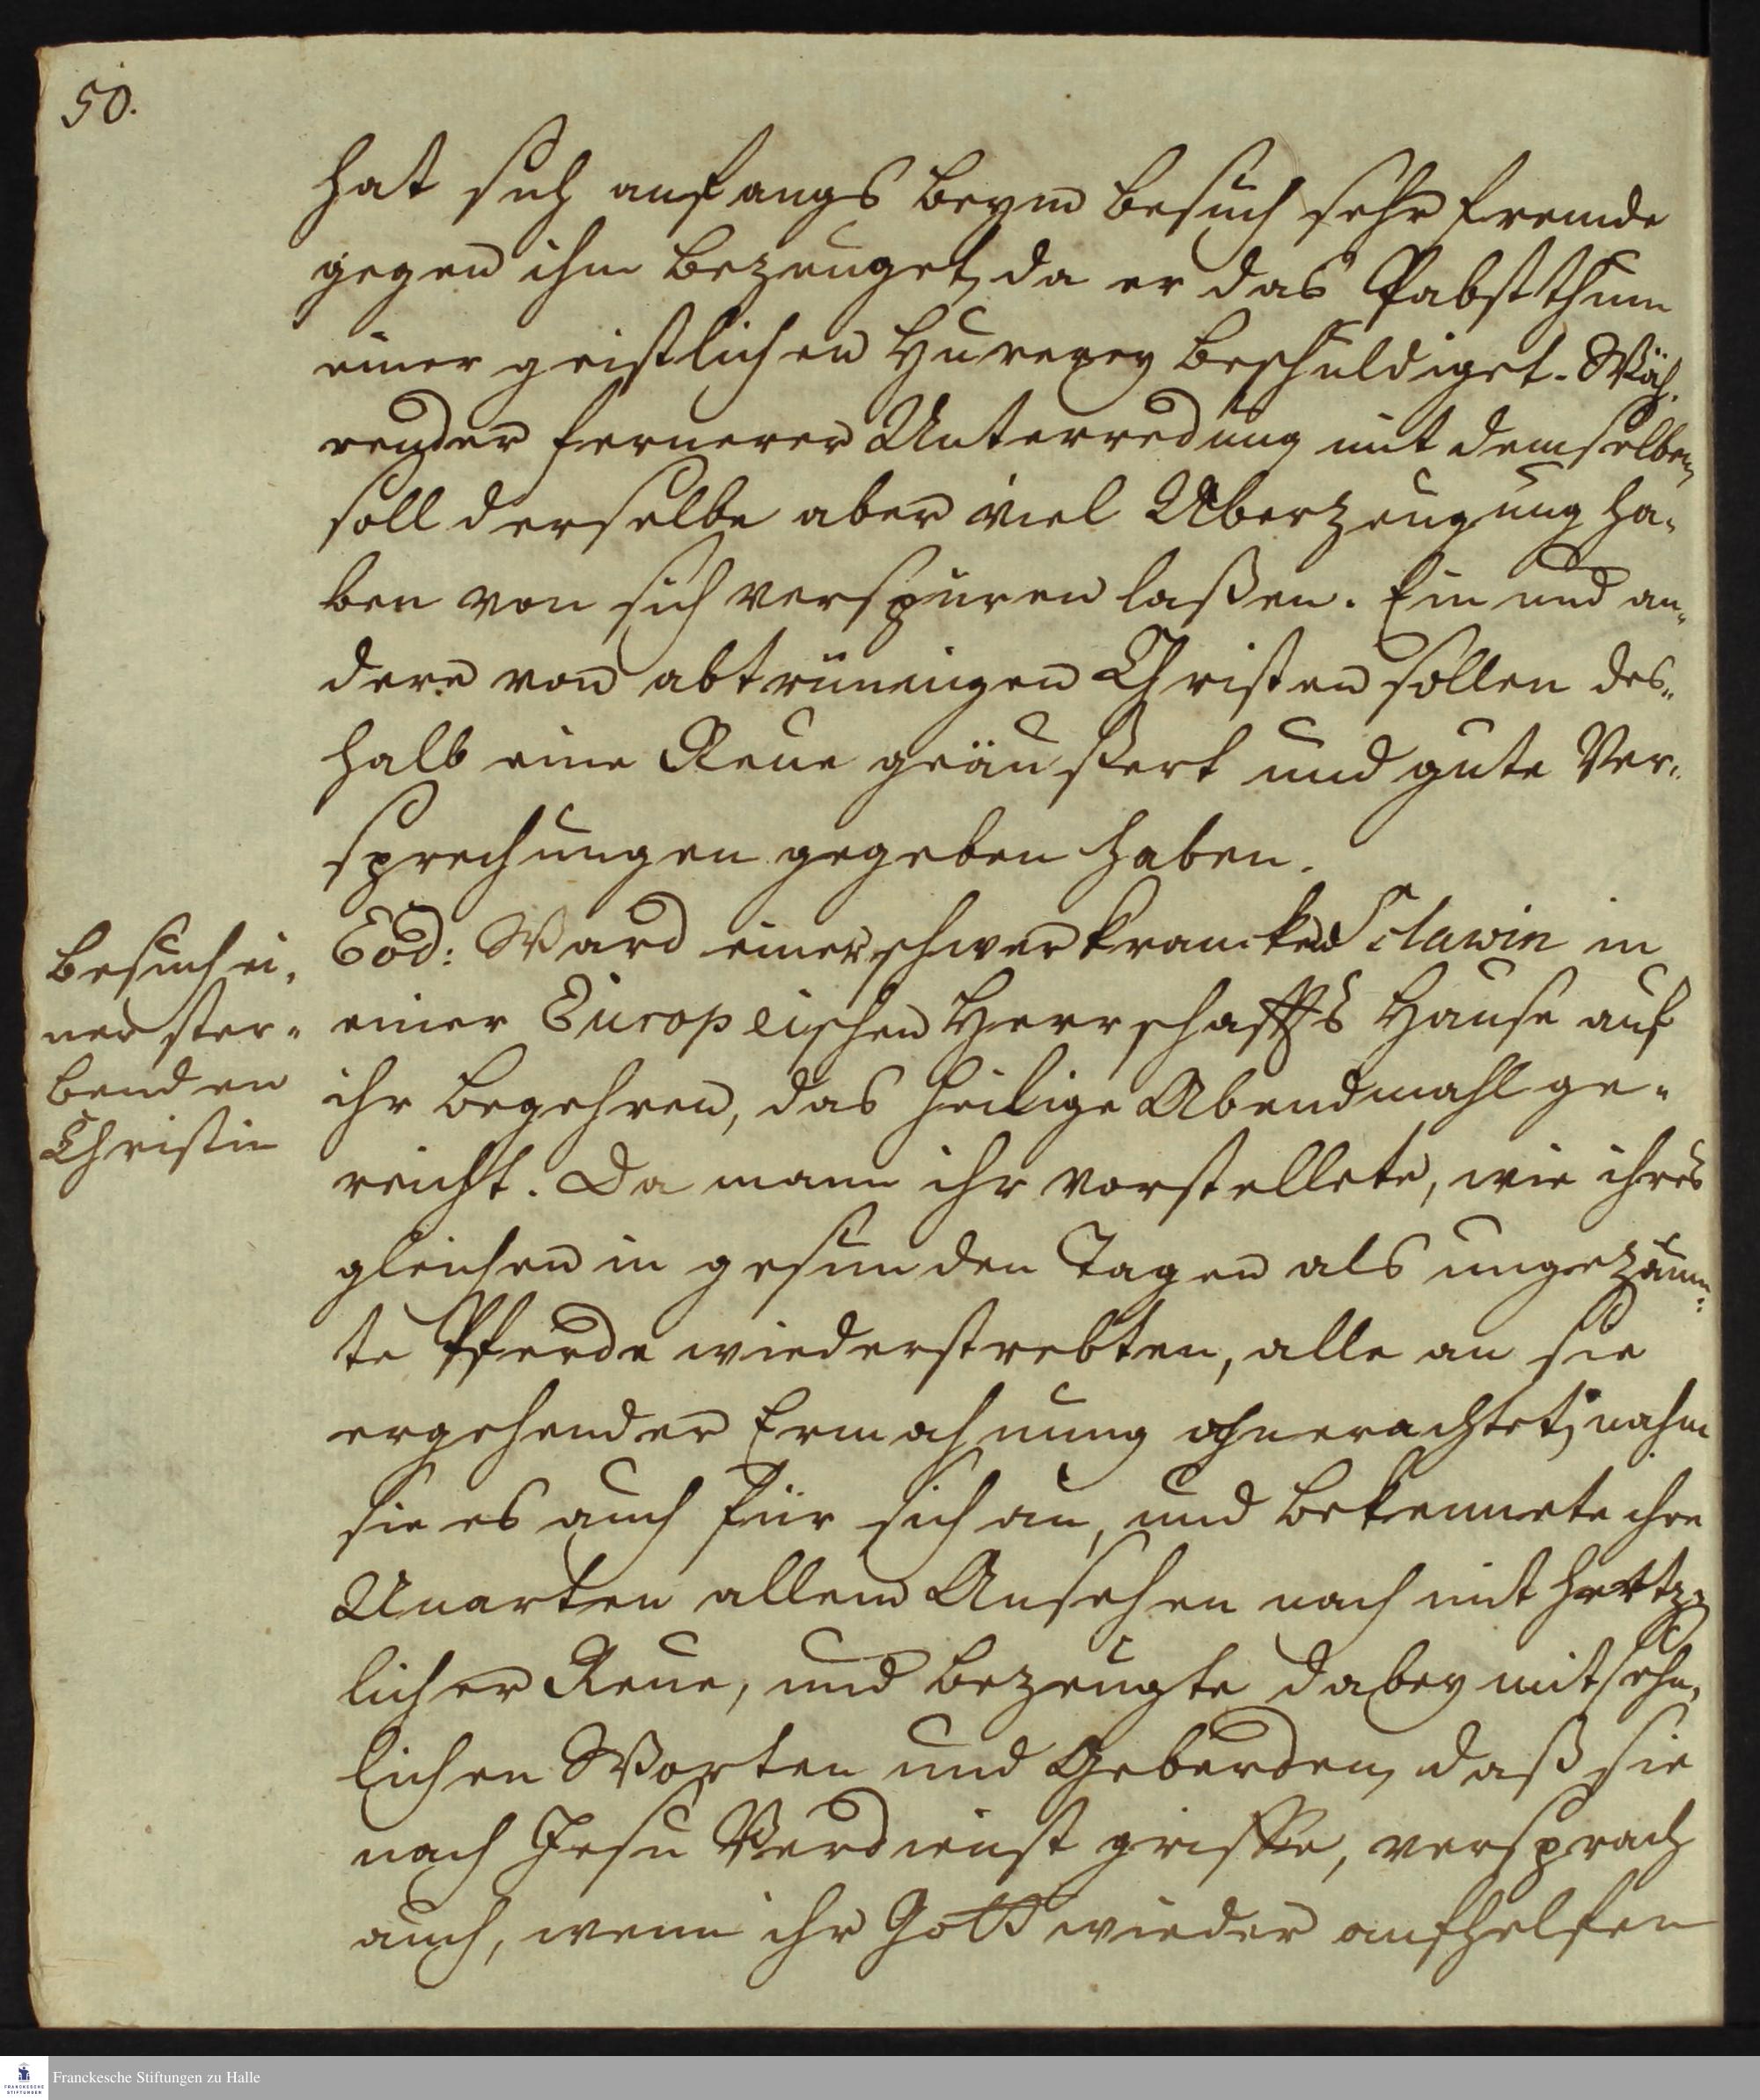 50.
hat sich anfangs beym besuch sehr fremde
gegen ihm bezeuget, da er das Pabstthum
einer geistlichen Hurerey beschuldiget. Wäh-
render fernerer Unterredung mit demselben,
soll derselbe aber viel Uberzeugung ha-
ben von sich verspüren laßen. Ein und an-
dere von abtrünnigen Christen sollen des-
halb eine Reue geäußert und gute Ver-
sprechungen gegeben haben.
Besuch ei-
ner ster-
benden
Christin
Eod: Ward einer schwer krancken Sclawin in
einer Europeischen Herrschaffts Hause auf
ihr begehren, das heilige Abendmahl ge-
reicht. Da mann ihr vorstellete, wie ihres
gleichen in gesunden Tagen als ungezäum-
te Pferde wiederstrebten, alle an sie
ergehender Ermahnung ohnerachtet, nahm
sie es auch für sich an, und bekennete ihre
Unarten allem Ansehen nach mit hertz-
licher Reue, und bezeugte dabey mit sehn-
lichen Worten und Geberden, daß sie
nach Jesu Verdienst griffe, versprach
auch, wenn ihr Gott wieder aufhelfen
Franckesche Stiftungen zu Halle